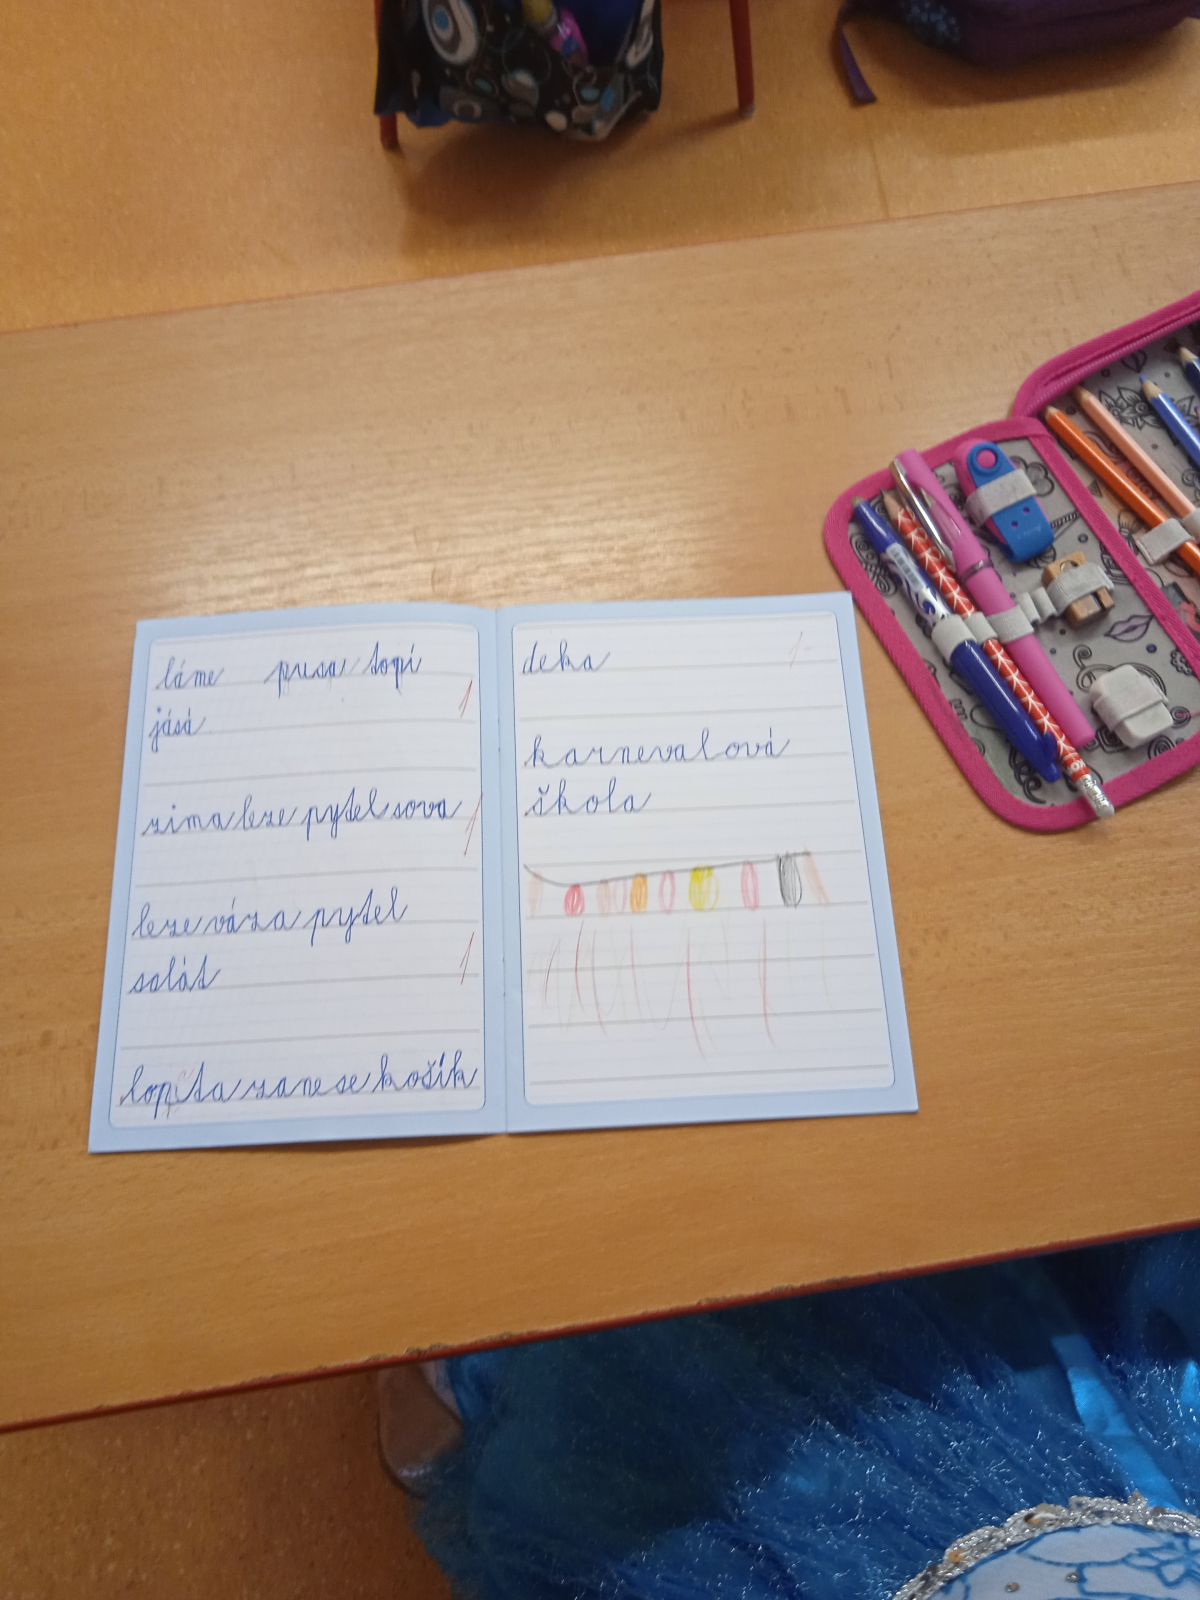 láme pusa topí
1
jásá
zima leze pytel sova
1
leze váza pytel
salát
1
lopta zanese košík
deka
1-
karnevalová
škola